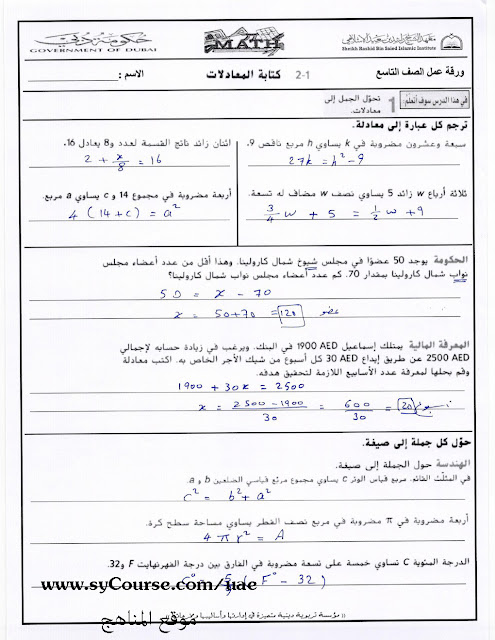 حكومة دبي
GOVERNMENT OF DUBAI
MATH
معهد الشيخ راشد بن سعيد الإسلامي
Sheikh Rashid Bin Saied Islamic Institute
ورقة عمل الصف التاسع
2-1 كتابة المعادلات
الاسم :
في هذا الدرس سوف أتعلم:
1 تحوّل الجمل إلى معادلات.
ترجم كل عبارة إلى معادلة.
سبعة وعشرون مضروبة في k يساوي h مربع ناقص 9.
27k = h² - 9
اثنان زائد ناتج القسمة لعدد و8 يعادل 16.
2 + x/8 = 16
ثلاثة أرباع w زائد 5 يساوي نصف w مضاف له تسعة.
3/4 w + 5 = 1/2 w + 9
أربعة مضروبة في مجموع 14 و c يساوي a مربع.
4 ( 14 + c ) = a²
الحكومة يوجد 50 عضوًا في مجلس شيوخ شمال كارولينا. وهذا أقل من عدد أعضاء مجلس
نواب شمال كارولينا بمقدار 70. كم عدد أعضاء مجلس نواب شمال كارولينا؟
50 = x - 70
x = 50 + 70 = 120 عضو
المعرفة المالية يمتلك إسماعيل 1900 AED في البنك. ويرغب في زيادة حسابه لإجمالي
2500 AED عن طريق إيداع 30 AED كل أسبوع من شيك الأجر الخاص به. اكتب معادلة
وقم بحلها لمعرفة عدد الأسابيع اللازمة لتحقيق هدفه.
1900 + 30x = 2500
x = 2500 - 1900 / 30 = 600 / 30 = 20 أسبوع
حوّل كل جملة إلى صيغة.
الهندسة حول الجملة إلى صيغة.
في المثلث القائم، مربع قياس الوتر c يساوي مجموع مربّع قياسي الضلعين b و a.
c² = b² + a²
أربعة مضروبة في π مضروبة في مربع نصف القطر يساوي مساحة سطح كرة.
4 π r² = A
الدرجة المئوية C تساوي خمسة على تسعة مضروبة في الفارق بين درجة الفهرنهايت F و32.
C° = 5/9 ( F° - 32 )
www.syCourse.com/uae
موقع المناهج